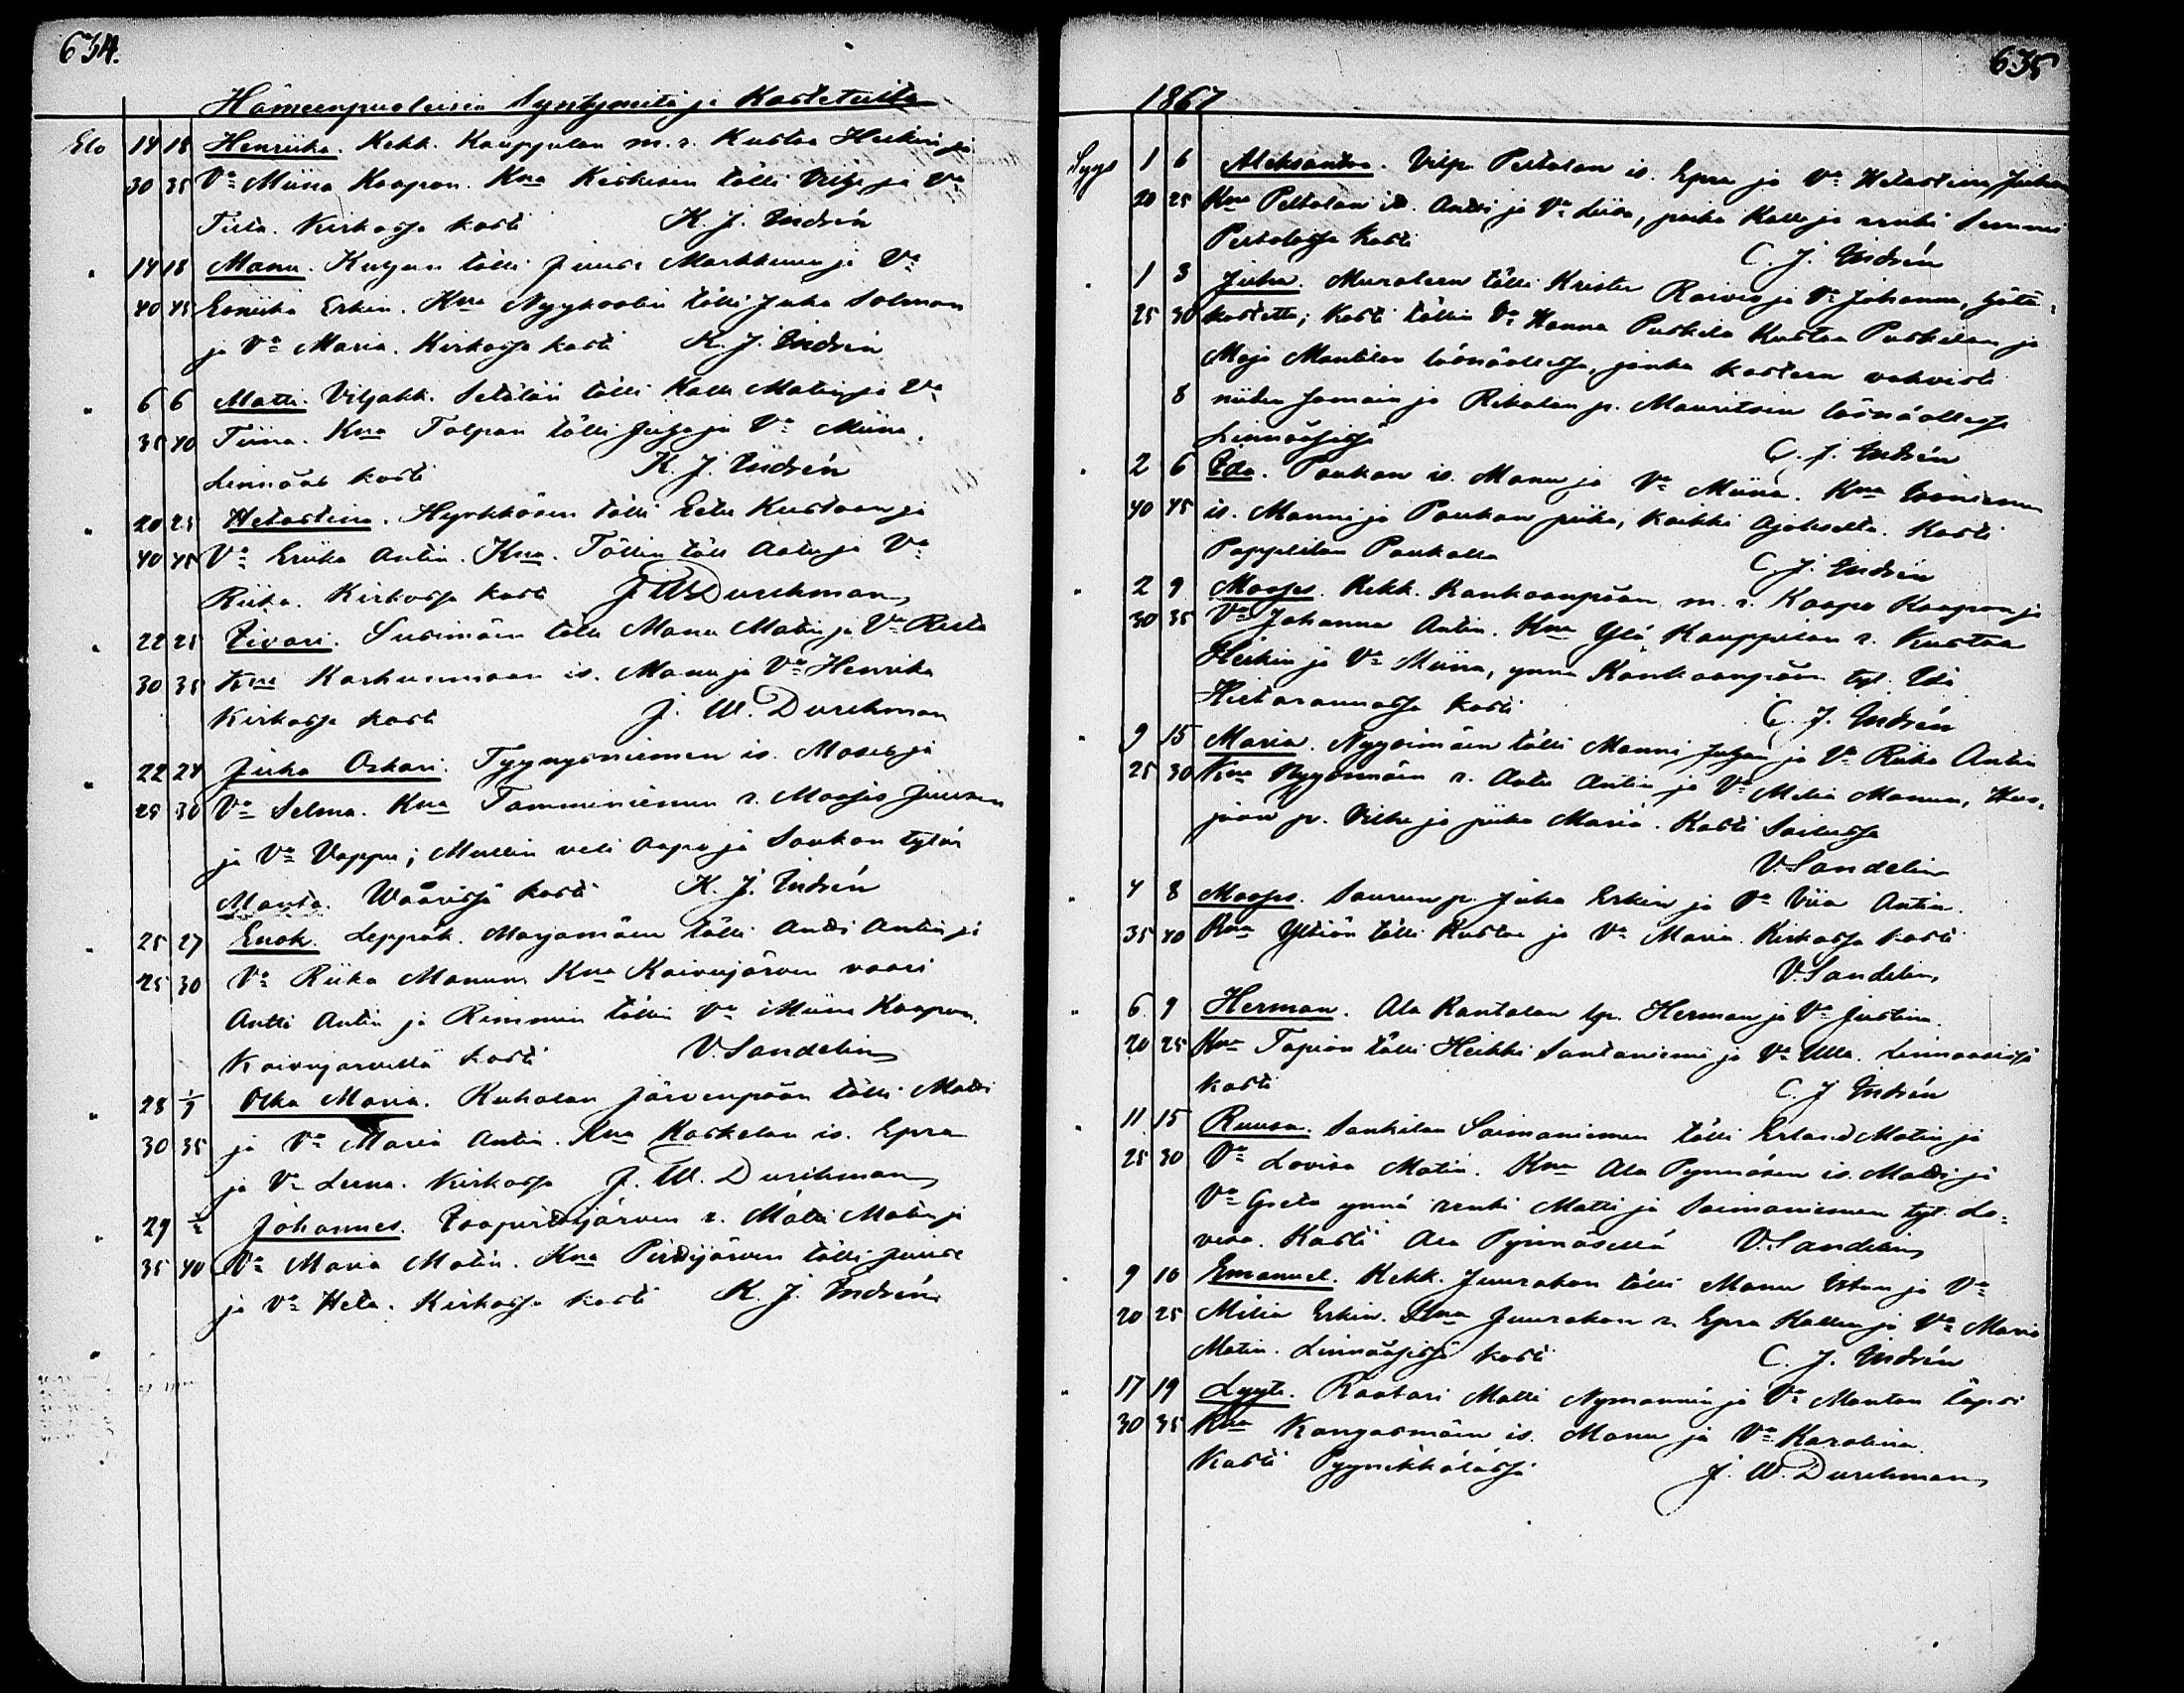 634.
Hämeenpuoleisia Syntyneitä ja Kastetuita
Elo 14 18 Henriika. Kekk. Kauppilan m. r. Kustaa Heikin ja
30 35 Va Miina Kaapon. Kna Keskisen tölli Vilje ja Va
Tiita. Kirkossa kasti K. J. Indrén
" 14 18 Manu. Kuljun tölli Juuse Markkuun ja Va
40 45 Eeriika Erkin. Kna Nyykoolin tölli Juha Salomon
ja Va Maria. Kirkossa kasti K. J. Indrén
" 6 6 Matti. Viljakk. Setälän tölli Kalle Matin ja Va
35 40 Tiina. Kna Talpan tölli Juha ja Va Miina.
Linnääs kasti K. J. Indrén
" 20 25 Hetastiina. Hyrkkösen tölli Eetu Kustaan ja
40 45 Va Eriika Antin. Kna. Töllin töll Aatu ja Va
Riika. Kirkossa kasti J. W. Durchman
" 22 25 Iivari. Susimäen tölli Manu Matin ja Va Reeta
30 35 Kna Karhunmaan is. Manu ja Va Henrika
Kirkossa kasti J. W. Durchman
" 22 24 Juha Oskari. Tyynysniemen is. Moses ja
25 30 Va Selma. Kna Tamminiemen r. Mooses Juusen
ja Va Vappu; Mullin veli Aapo ja Saukon tytär
Manta. Waavissä kasti K. J. Indrén
" 25 27 Enok. Leppäk. Marjamäen tölli Antti Antin ja
25 30 Va Riika Manuun Kna Kaivujärven vaari
Antti Antin ja Rimmin tölli Va Miina Kaapon.
Kaivujärvellä kasti V. Sandelin
" 28 1/9 Olka Maria. Kuhalan Järvenpään tölli Matti
30 35 ja Va Maria Antin. Kna Koskelan is. Epra
ja Va Leena. Kirkossa J. W. Durchman
" 29 Johannes. r. Matti Matin ja
35 40 Va Maria Matin. Kna Pirttijärven tölli Juuse
ja Va Heta. Kirkossa kasti K. J. Indrén
635
1867
Syys 1 6 Aleksantra. Vilp. Peltolan is. Epra ja Va Hetastiina Juhan
20 25 Kna Peltolan is. Antti ja Va Liisa, poika Kalle ja renki Semmi
Peltolassa kasti C. J. Indrén
" 1 3 Juha. Muralan tölli Krister Raivio ja Va Johanna, hätä-
25 30 kastettu; kasti töllin Va Hanna Puskila Kustaa Puskilan ja
Maja Mantilan läsnäollessa, jonka kasteen vahvisti
8 niiden samain ja Rekolan p. Mauritsin läsnäollessa
C. J. Indrén
" 2 6 Ida. Paukan is. Manu ja Va Miina. Kna
40 45 is. Manni ja Paukan piika, kaikki Ajokselta. Kasti
Pappililan Paukalla C. J. Indrén
" 2 9 Mooses. Kekk. Kankaanpään m. r. Kaapo Kaapon ja
30 35 Va Johanna Antin. Kna Ylä Kauppilan r. Kustaa
Heikin ja Va Miina, ynnä Kankaanpään tyt. Ida
Hietarannassa kasti C. J. Indrén
" 9 15 Maria. Nyyssimäen tölli Manni Juhan ja Va Riika Antin
25 30 Kna Nyyssimäen r. Aatu Antin ja Va Melia Manuun,
p. Vilhe ja piika Maria. Kasti
V. Sandelin
" 4 8 Mooses. Saurun p. Juha Erkin ja Va Viia Antin.
35 40 Kna Yltiön tölli Kustaa ja Va Maria. Kirkossa kasti
V. Sandelin
" 6 9 Herman. Ala Rantalan lp. Herman ja Va Justiina.
20 25 Kna Tapion tölli Heikki Santaniemi ja Va Ulla.
kasti C. J. Indrén
" 11 15 Ruusa. Sankilan Saimaniemen tölli Erland Matin ja
25 30 Va Lovisa Matin. Kna Ala Pynnösen is. Matti ja
Va Greta ynnä renki Matti ja Saimaniemen tyt. Lo-
visa. Kasti Ala Pynnösellä V. Sandelin
" 9 10 Emanuel. Kekk. Juurakon tölli Manu ja Va
20 25 Milia Erkin. Kna Juurakon r. Epra Kallen ja Va Maria
Matin. Linnääsissä kasti C. J. Indrén
" 17 19 Lyyti. Raatari Matti Nymannin ja Va Mantan lapsi
30 35 Kna Kangasmäen is. Manu ja Va Karolina.
Kasti Pyynikkälässä J. W. Durchman